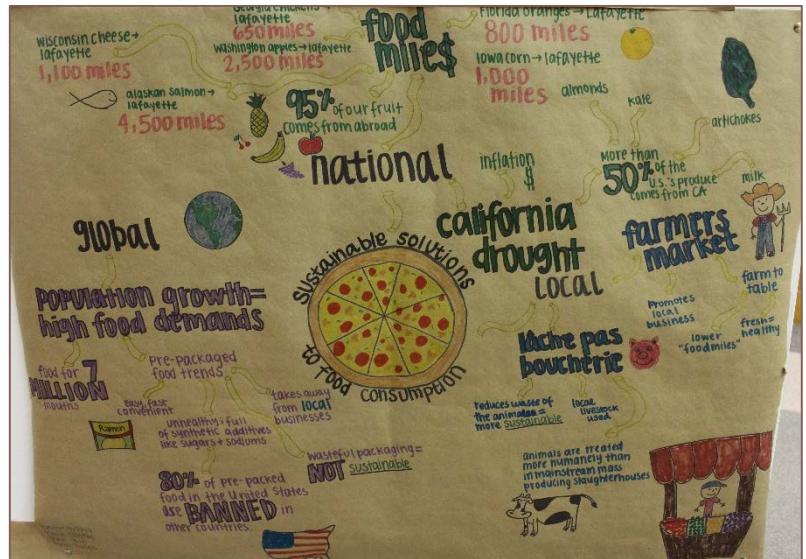 Wisconsin cheese→
lafayette
1,100 miles
Georgia chickens→
lafayette
650 miles
Washington apples→lafayette
2,500 miles
food
mile$
Florida oranges→Lafayette
800 miles
Iowa corn→lafayette
1,000
miles
almonds
kale
artichokes
alaskan salmon→
lafayette
4,500 miles
95% of our fruit
comes from abroad
national
inflation
$
More than
50% of the
U.S.'s produce
comes from CA
milk
global
california
drought
farmers
market
farm to
table
fresh=
healthy
Promotes
local
business
lower
"foodmiles"
local
Sustainable solutions
to food consumption
Population growth=
high food demands
food for 7
MILLION
mouths
Pre-packaged
food trends
easy, fast
convenient
Ramen
unhealthy: full
of synthetic additives
like sugars + sodiums
takes away
from local
businesses
wasteful packaging=
NOT sustainable
80% of pre-packed
food in the United States
are BANNED in
other countries
lâche pas
boucherie
reduces waste of
the animals=
more sustainable
local
livestock
used
animals are treated
more humanely than
in mainstream mass
producing slaughterhouses